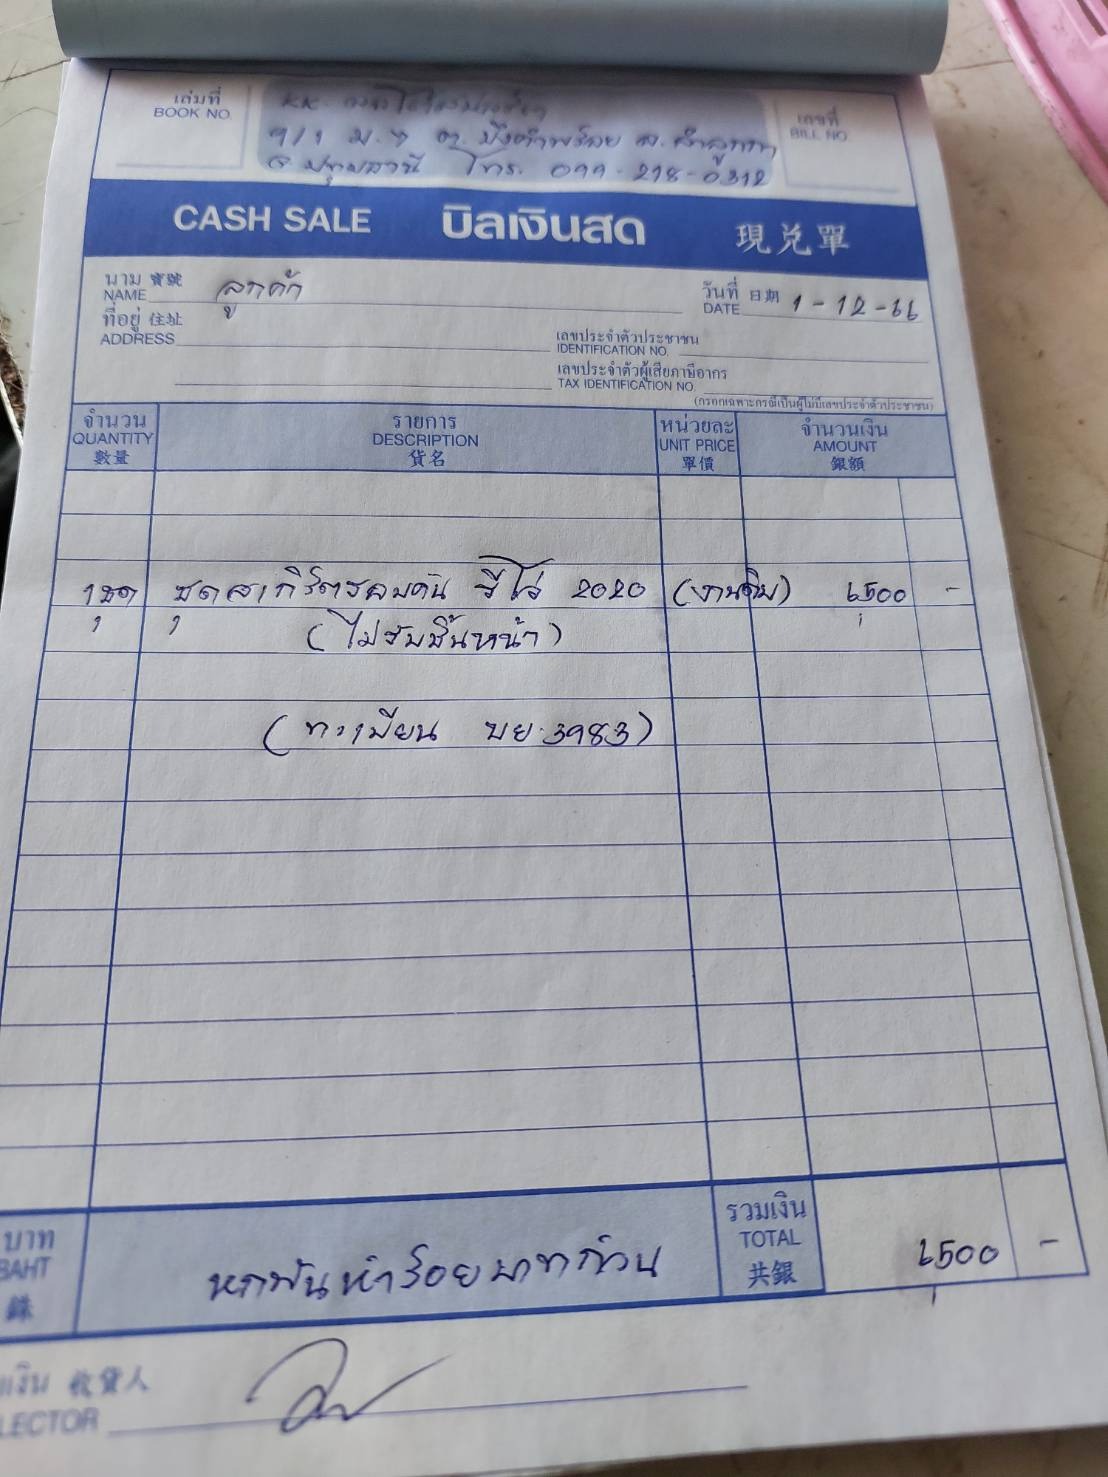 เล่มที่
BOOK NO.
KK.
เลขที่
BILL NO
9/1 ม.7 ต. บึงคำพร้อย อ. ลำลูกกา
จ. ปทุมธานี โทร. 099-218-0312
CASH SALE บิลเงินสด 現兌單
นาม 寶號
NAME ลูกค้า
วันที่ 日期
DATE 1-12-66
ที่อยู่ 住址
ADDRESS
เลขประจำตัวประชาชน
IDENTIFICATION NO.
เลขประจำตัวผู้เสียภาษีอากร
TAX IDENTIFICATION NO.
(กรอกเฉพาะกรณีเป็นผู้ไม่มีเลขประจำตัวประชาชน)
จำนวน รายการ หน่วยละ จำนวนเงิน
QUANTITY DESCRIPTION UNIT PRICE AMOUNT
數量 貨名 單價 銀額
1ชุด ชุดสเกิร์ตรอบคัน รีโว่ 2020 (งานดิบ) 6,500 -
(ไม่รับชิ้นหน้า)
(ทะเบียน ขย.3983)
บาท
BAHT
銖
หกพันห้าร้อยบาทถ้วน
รวมเงิน
TOTAL
共銀
6,500 -
เงิน 收貨人
LECTOR